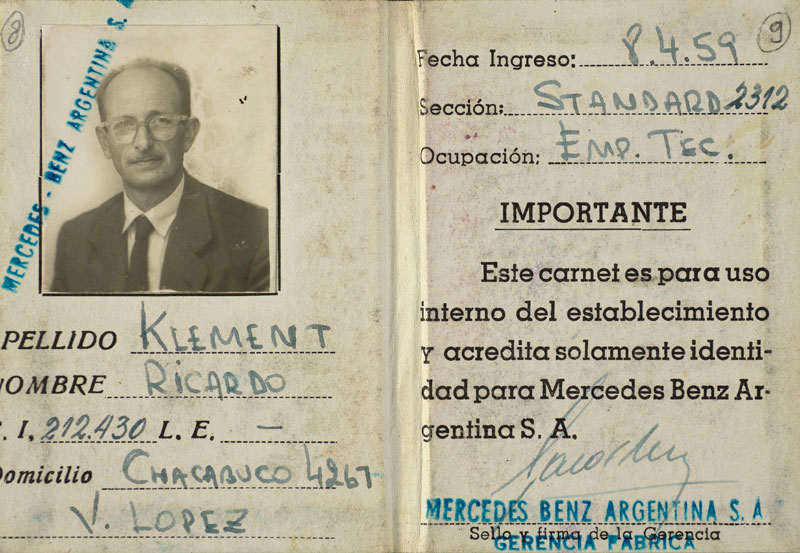 8
MERCEDES - BENZ ARGENTINA S. A.
PELLIDO KLEMENT
NOMBRE RICARDO
. I. 212.430 L. E. —
Domicilio CHACABUCO 4267
V. LOPEZ
9
Fecha Ingreso: 8.4.59
Sección: STANDARD 2312
Ocupación: EMP. TEC.
IMPORTANTE
Este carnet es para uso
interno del establecimiento
y acredita solamente identi-
dad para Mercedes Benz Ar-
gentina S. A.
MERCEDES BENZ ARGENTINA S. A
Sello y firma de la Gerencia
GERENCIA FABRICA